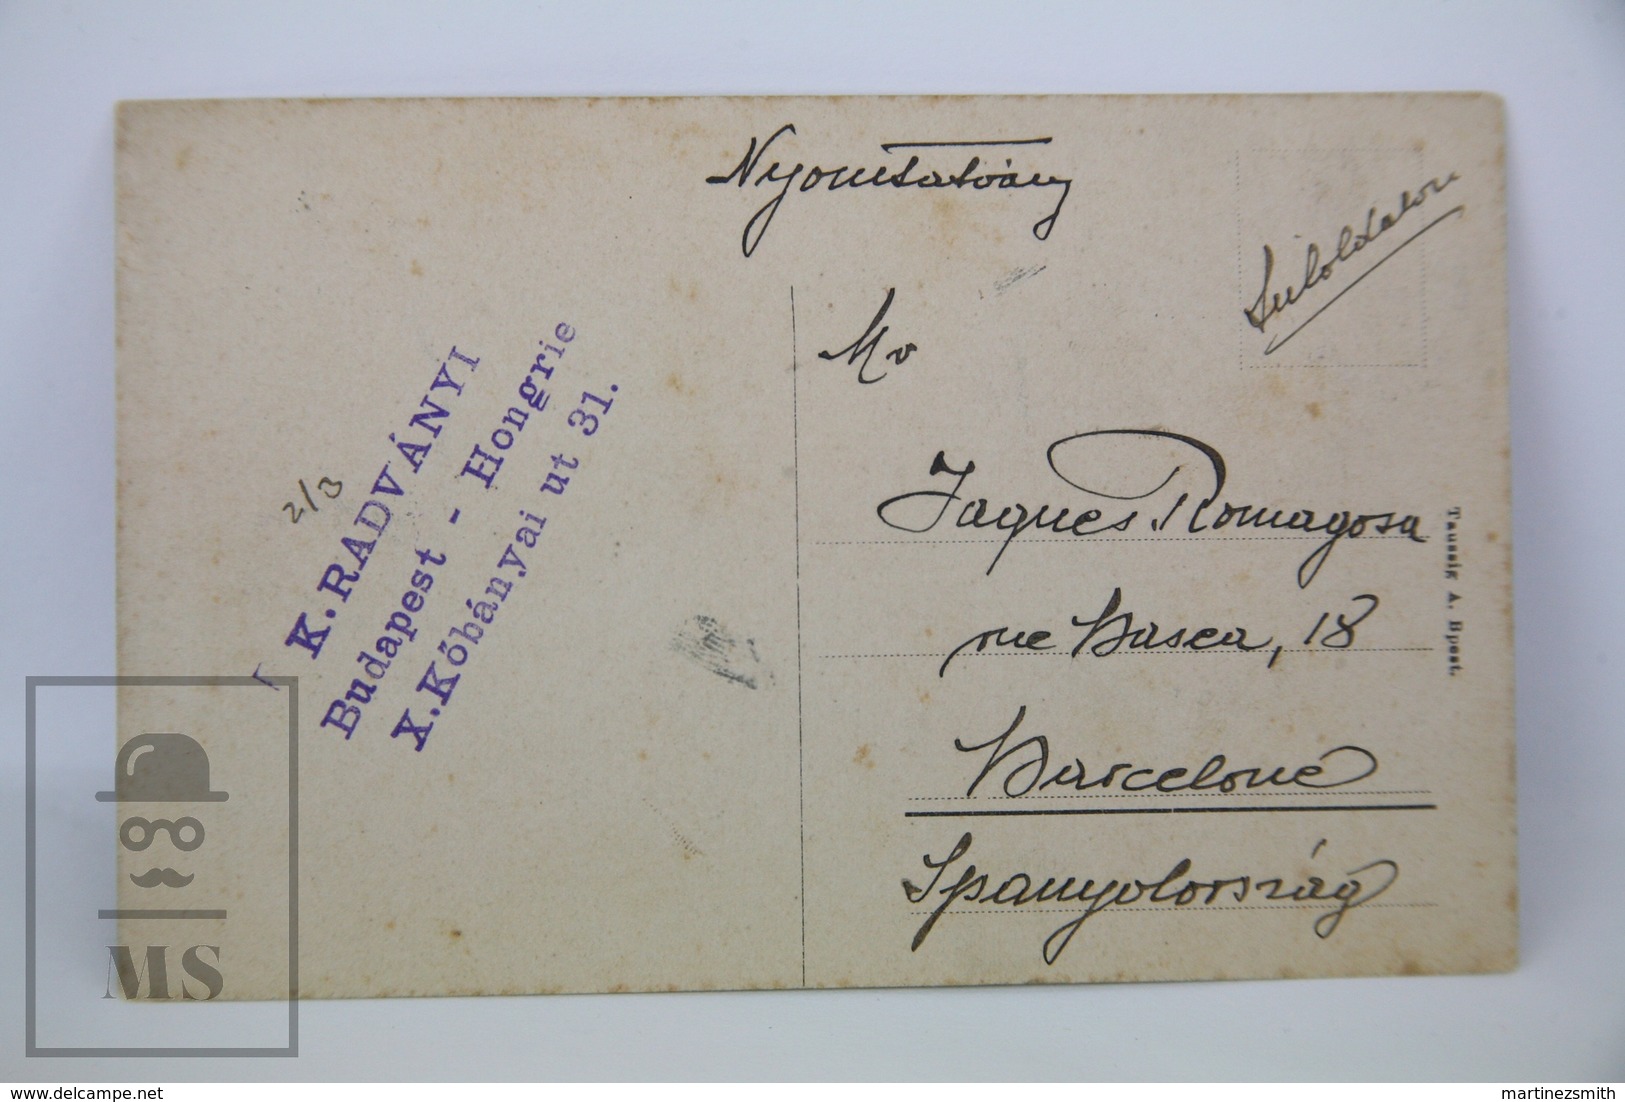 Nyomtatvány
Túloldalon
Mr
Jaques Romagosa
rue Basea, 18
Barceloné
Spanyolország
K. RADVÁNYI
Budapest - Hongrie
X. Kőbányai ut 31.
2/3
Taussig A. Bpest.
MS
delcampe.net
martinezsmith